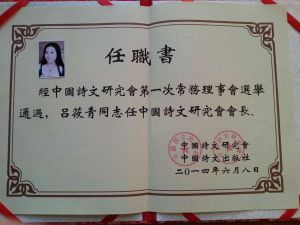 任職書
經中國詩文研究會第一次常務理事會選舉
通過，呂筱青同志任中國詩文研究會會長．
中國詩文研究會
中國詩文出版社
二〇一四年六月八日